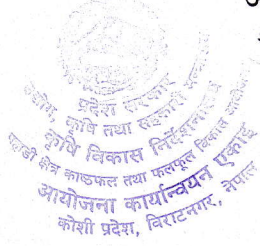 प्रदेश सरकार
उद्योग, कृषि तथा सहकारी
कृषि विकास निर्देशनालय
पहाडी क्षेत्र काष्ठफल तथा फलफूल विकास आयोजना
आयोजना कार्यान्वयन एकाई
कोशी प्रदेश, विराटनगर, नेपाल